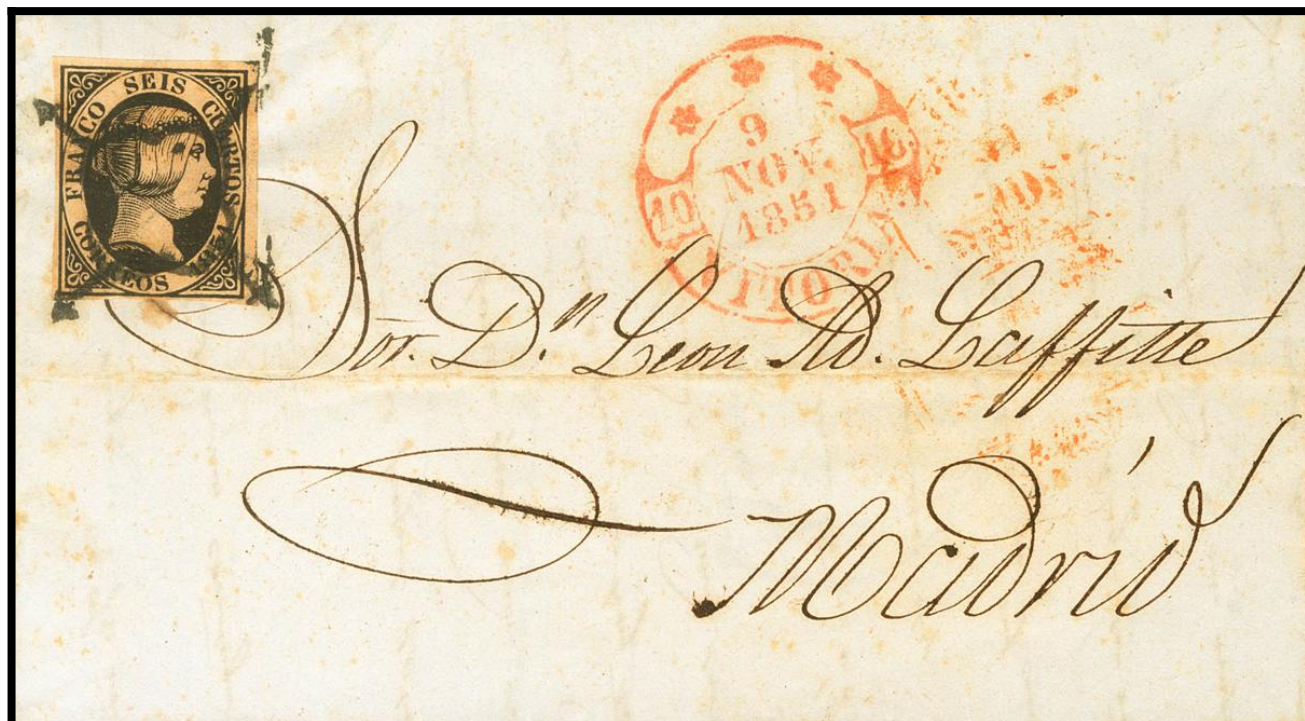 FRANCO SEIS CUARTOS
CORREOS 1851
9
NOV.
1851
10 10
VITORIA
Sor. Dn. Leon Ad. Laffitte
Madrid